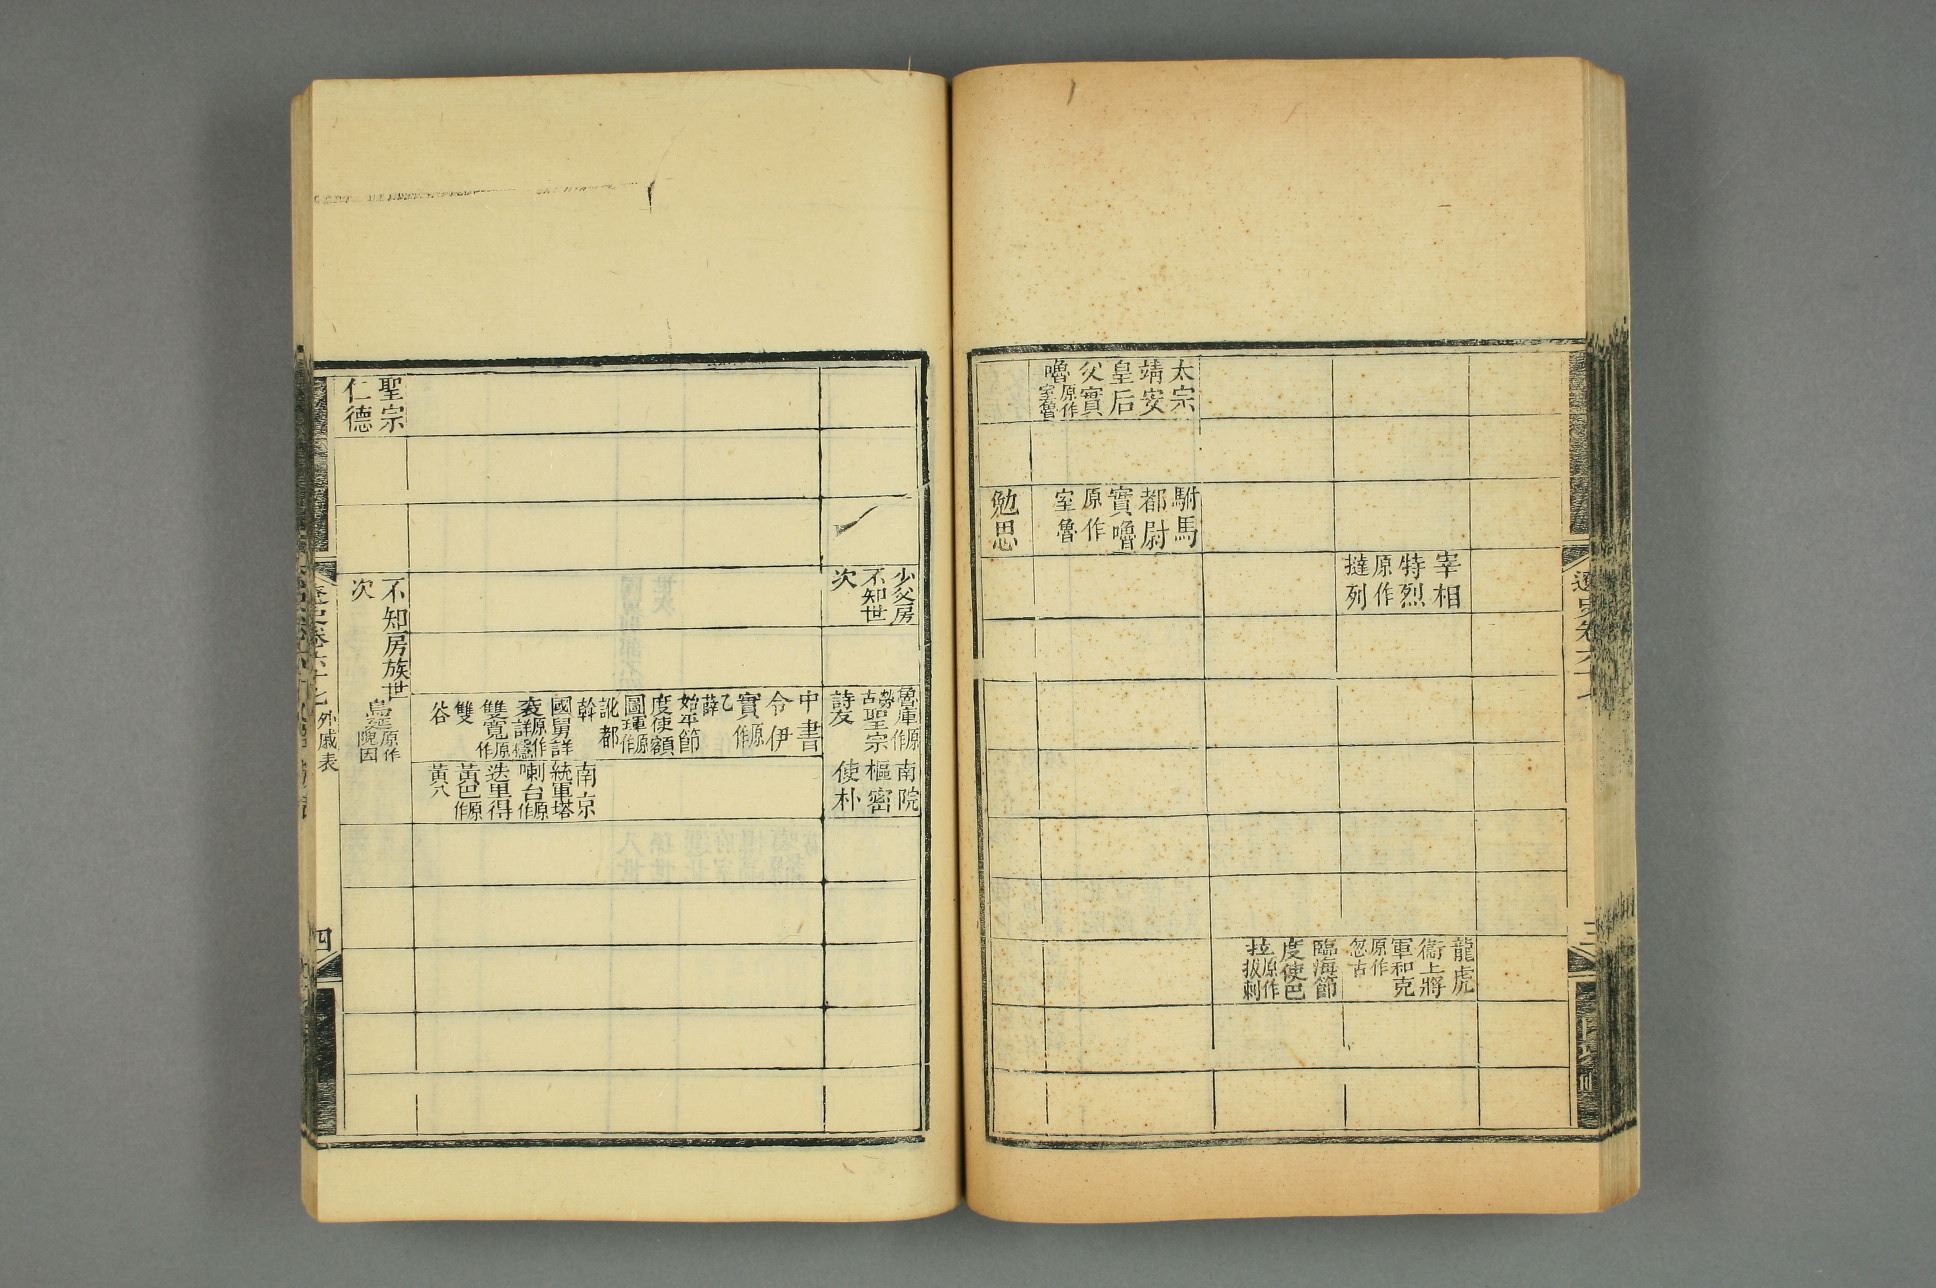 遼史卷六十七
三
宰相
特烈
原作
撻列
龍虎
衞上將
軍和克
原作
忽古
臨海節
度使巴
拉原作
拔剌
太宗
靖安
皇后
父實
嚕原作
室魯
駙馬
都尉
實嚕
原作
室魯
勉思
少父房
不知世
次
魯庫原
作
聖宗
詩友
南院
樞密
使朴
中書
令伊
實原
作
乙
薛
始平節
度使額
圖琿原
作
訛都
斡
國舅詳
袞原作
詳穩
雙寬原
作
雙
谷
南京
統軍塔
喇台原
作
迭里得
黃巴原
作
黃八
不知房族世
次
烏延原作
隗因
聖宗
仁德
遼史卷六十七
外戚表
四